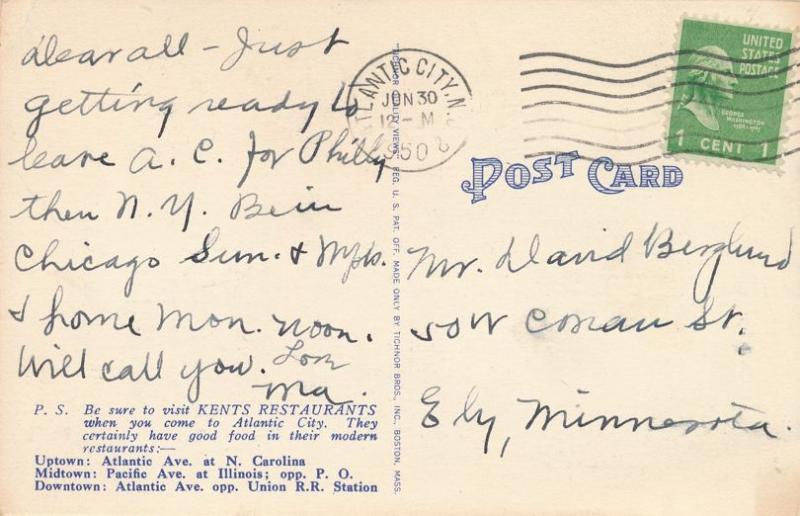 Dear all - Just
getting ready to
leave A. C. for Philly
then N. Y. Be in
Chicago Sun. & Mpls.
& home Mon. noon.
Will call you. Love
Ma.
P. S. Be sure to visit KENTS RESTAURANTS
when you come to Atlantic City. They
certainly have good food in their modern
restaurants:—
Uptown: Atlantic Ave. at N. Carolina
Midtown: Pacific Ave. at Illinois; opp. P. O.
Downtown: Atlantic Ave. opp. Union R.R. Station
TICHNOR QUALITY VIEWS, REG. U. S. PAT. OFF. MADE ONLY BY TICHNOR BROS., INC., BOSTON, MASS.
ATLANTIC CITY, N.
JUN 30
12 - M
1950
UNITED
STATES
POSTAGE
GEORGE
WASHINGTON
1 CENT 1
POST CARD
Mr. David Berglund
50 W Conan St.
Ely, Minnesota.